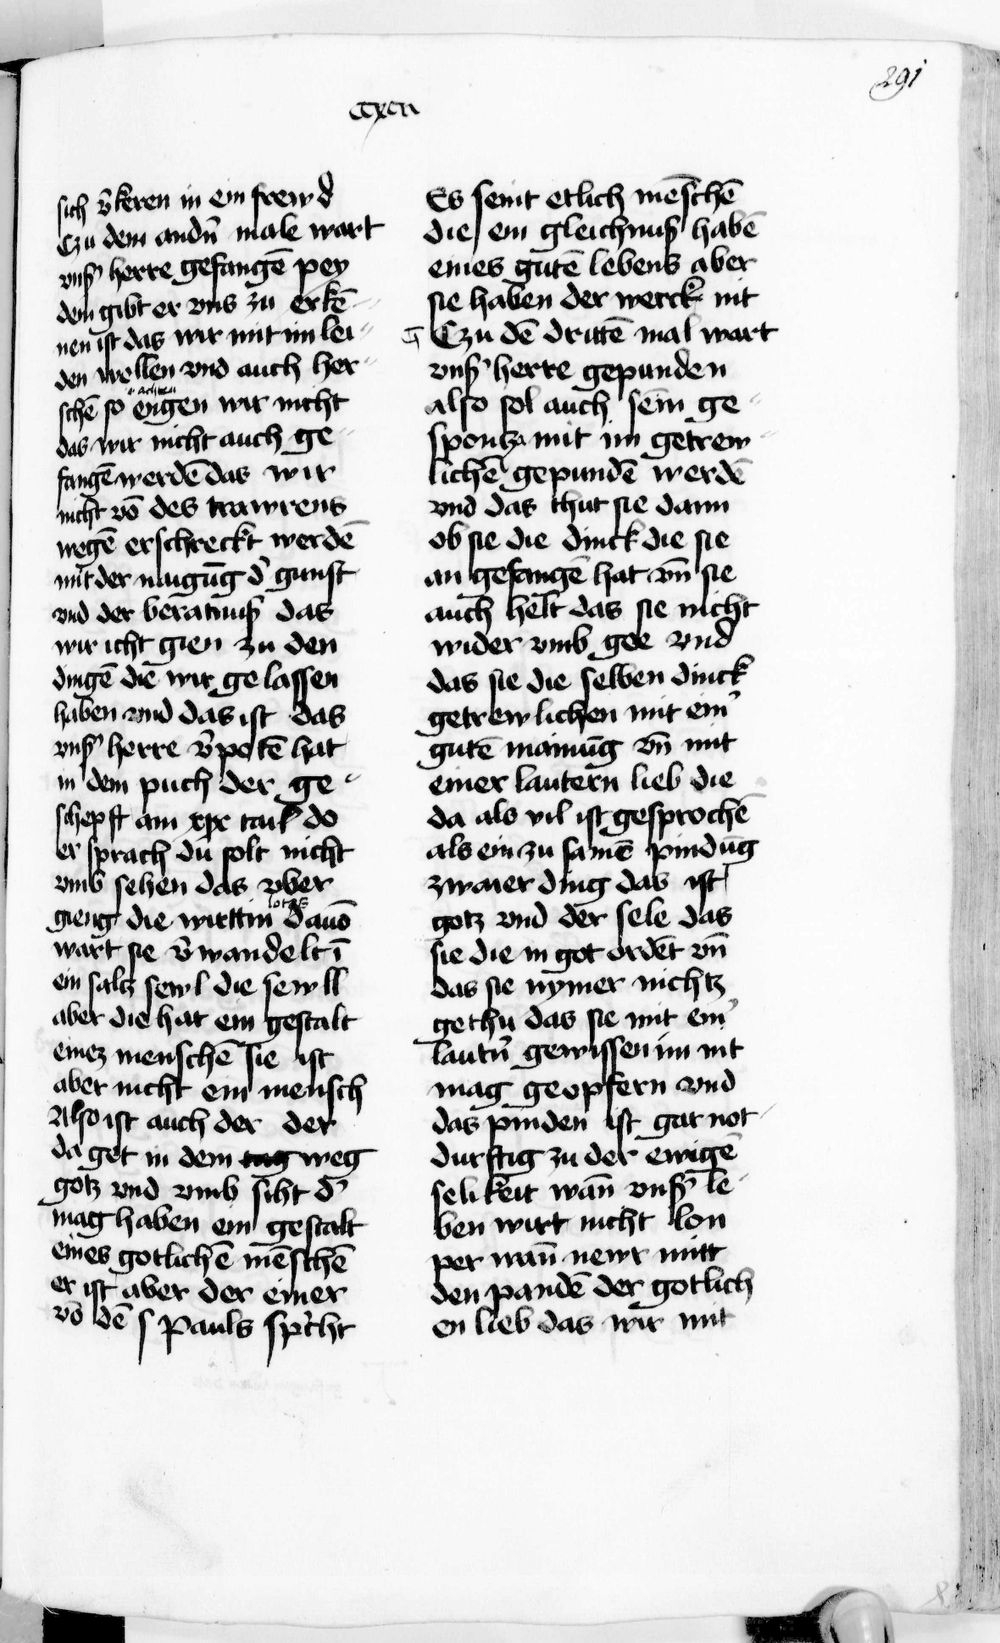 291
ccxcii
sich v̄keren in ein frewd
Czu dem andn̄ male wart
vnsr̄ herre gefangē pey
dem gibt er vns zu erkē-
nen ist das wir mit im lei-
den wellen vnd auch her-
achten
schē so eẏgen wir nicht
das wir nicht auch ge-
fangē werdē das wir
nicht vō des trawrens
wegē erschreckt werdē
mit der naigūg d̄ gunst
vnd der beratnuß das
wir icht gien zu den
dingē die wir gelassen
haben vnd das ist das
vnsr̄ herre v̄potē hat
in dem puch der ge-
schepft am xix tail do
er sprach du solt nicht
vmb sehen das vber
lotas
gieng die wirttin dauō
wart sie v̄wandelt ī
ein saltz sewl die sewll
aber die hat ein gestalt
einez menschē sie ist
aber nicht ein mensch
Also ist auch der der
da get in dem tag weg
gotz vnd vmb siht d̄
mag haben ein gestalt
eines gotlichē mēschē
er ist aber der einer
vō dē s Pauls sp̄cht
Es seint etlich mēschē
die ein gleichnuß habē
eines gutē lebens aber
sie haben der werck nit
Czu dē drittē mal wart
vnsr̄ herre gepunden
also sol auch sein ge-
spontz mit im getrew-
lichē gepundē werdē
vnd das thut sie dann
ob sie die dinck die sie
an gefangē hat vn̄ sie
auch helt das sie nicht
wider vmb gee vnd
das sie die selben dinck
getrewlichen mit ein̄
gutē mainūg vn̄ mit
einer lautern lieb die
da als vil ist gesprochē
als ein zu samē pindūg
zwaier ding das ist
gotz vnd der sele das
sie die in got ordēt vn̄
das sie nymer nichtz
gethu das sie mit ein̄
lautn̄ gewissen im nit
mag geopfern vnd
das pinden ist gar not-
durftig zu der ewigē
selikeit wān vnsr̄ le-
ben wirt nicht lon
per wān newr mitt
den pandē der gotlich
en lieb das wir mit